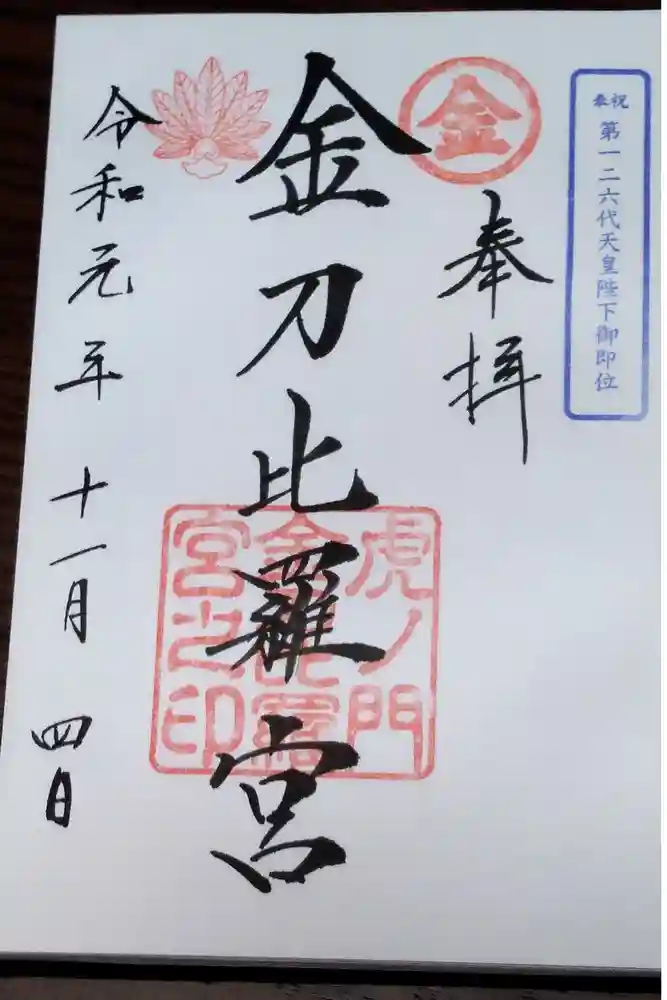 奉祝 第一二六代天皇陛下御即位
金
奉拝
金刀比羅宮
虎ノ門
金刀比羅
宮之印
令和元年 十一月 四日